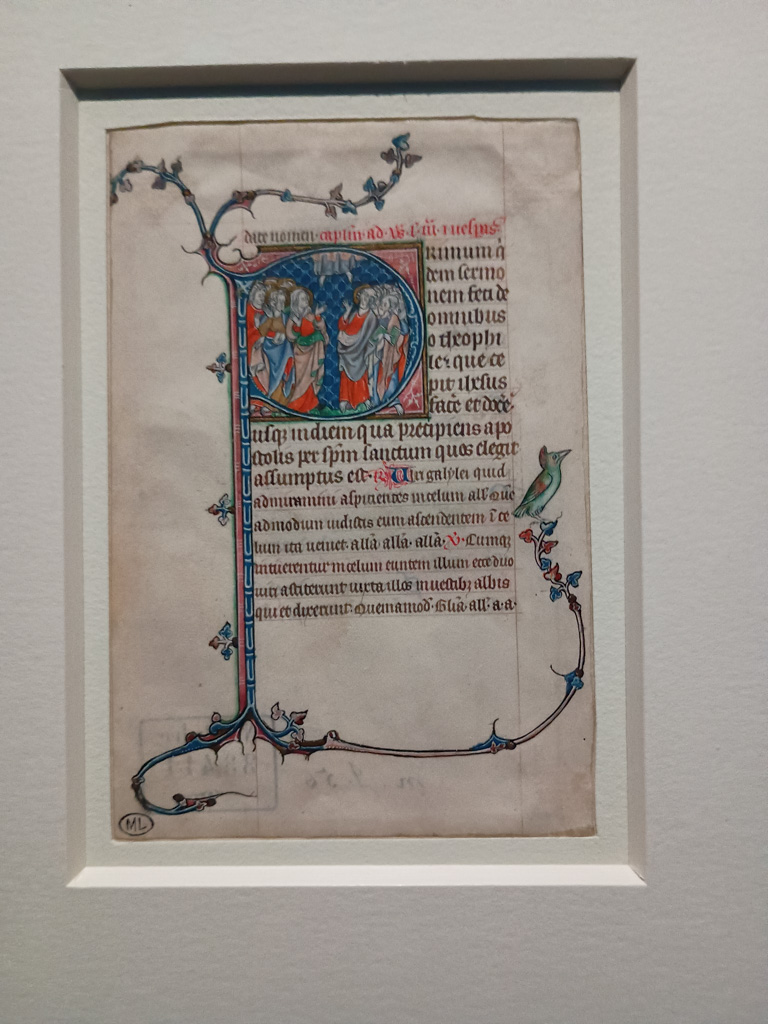 date nomen. caplm ad
rimum q
dem sermo
nem feci de
omnibus
o theophi
le: que ce
pit ihesus
face et doce
usq; in diem qua precipiens apo
stolis per spm sanctum quos elegit
assumptus est. Viri galylei quid
admiramini aspicientes in celum all' Que
admodum uidistis eum ascendentem i ce
lum ita ueniet. alla. alla. alla. V. Cumq;
intuerentur in celum euntem illum ecce duo
uiri astiterunt iuxta illos in uestib; albis
qui et dixerunt. Quemamod. Glia. all'. a. a.
ML